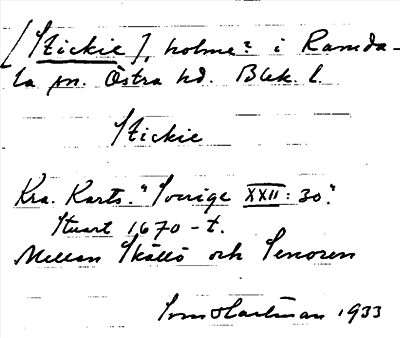 [Stickie], holme? i Ramda-
la sn. Östra hd. Blek. l.
Stickie
Kra. Karts. "Sverige XXII: 30".
Stuart 1670-t.
Mellan Skällö och Senoren
Sven Hartman 1933